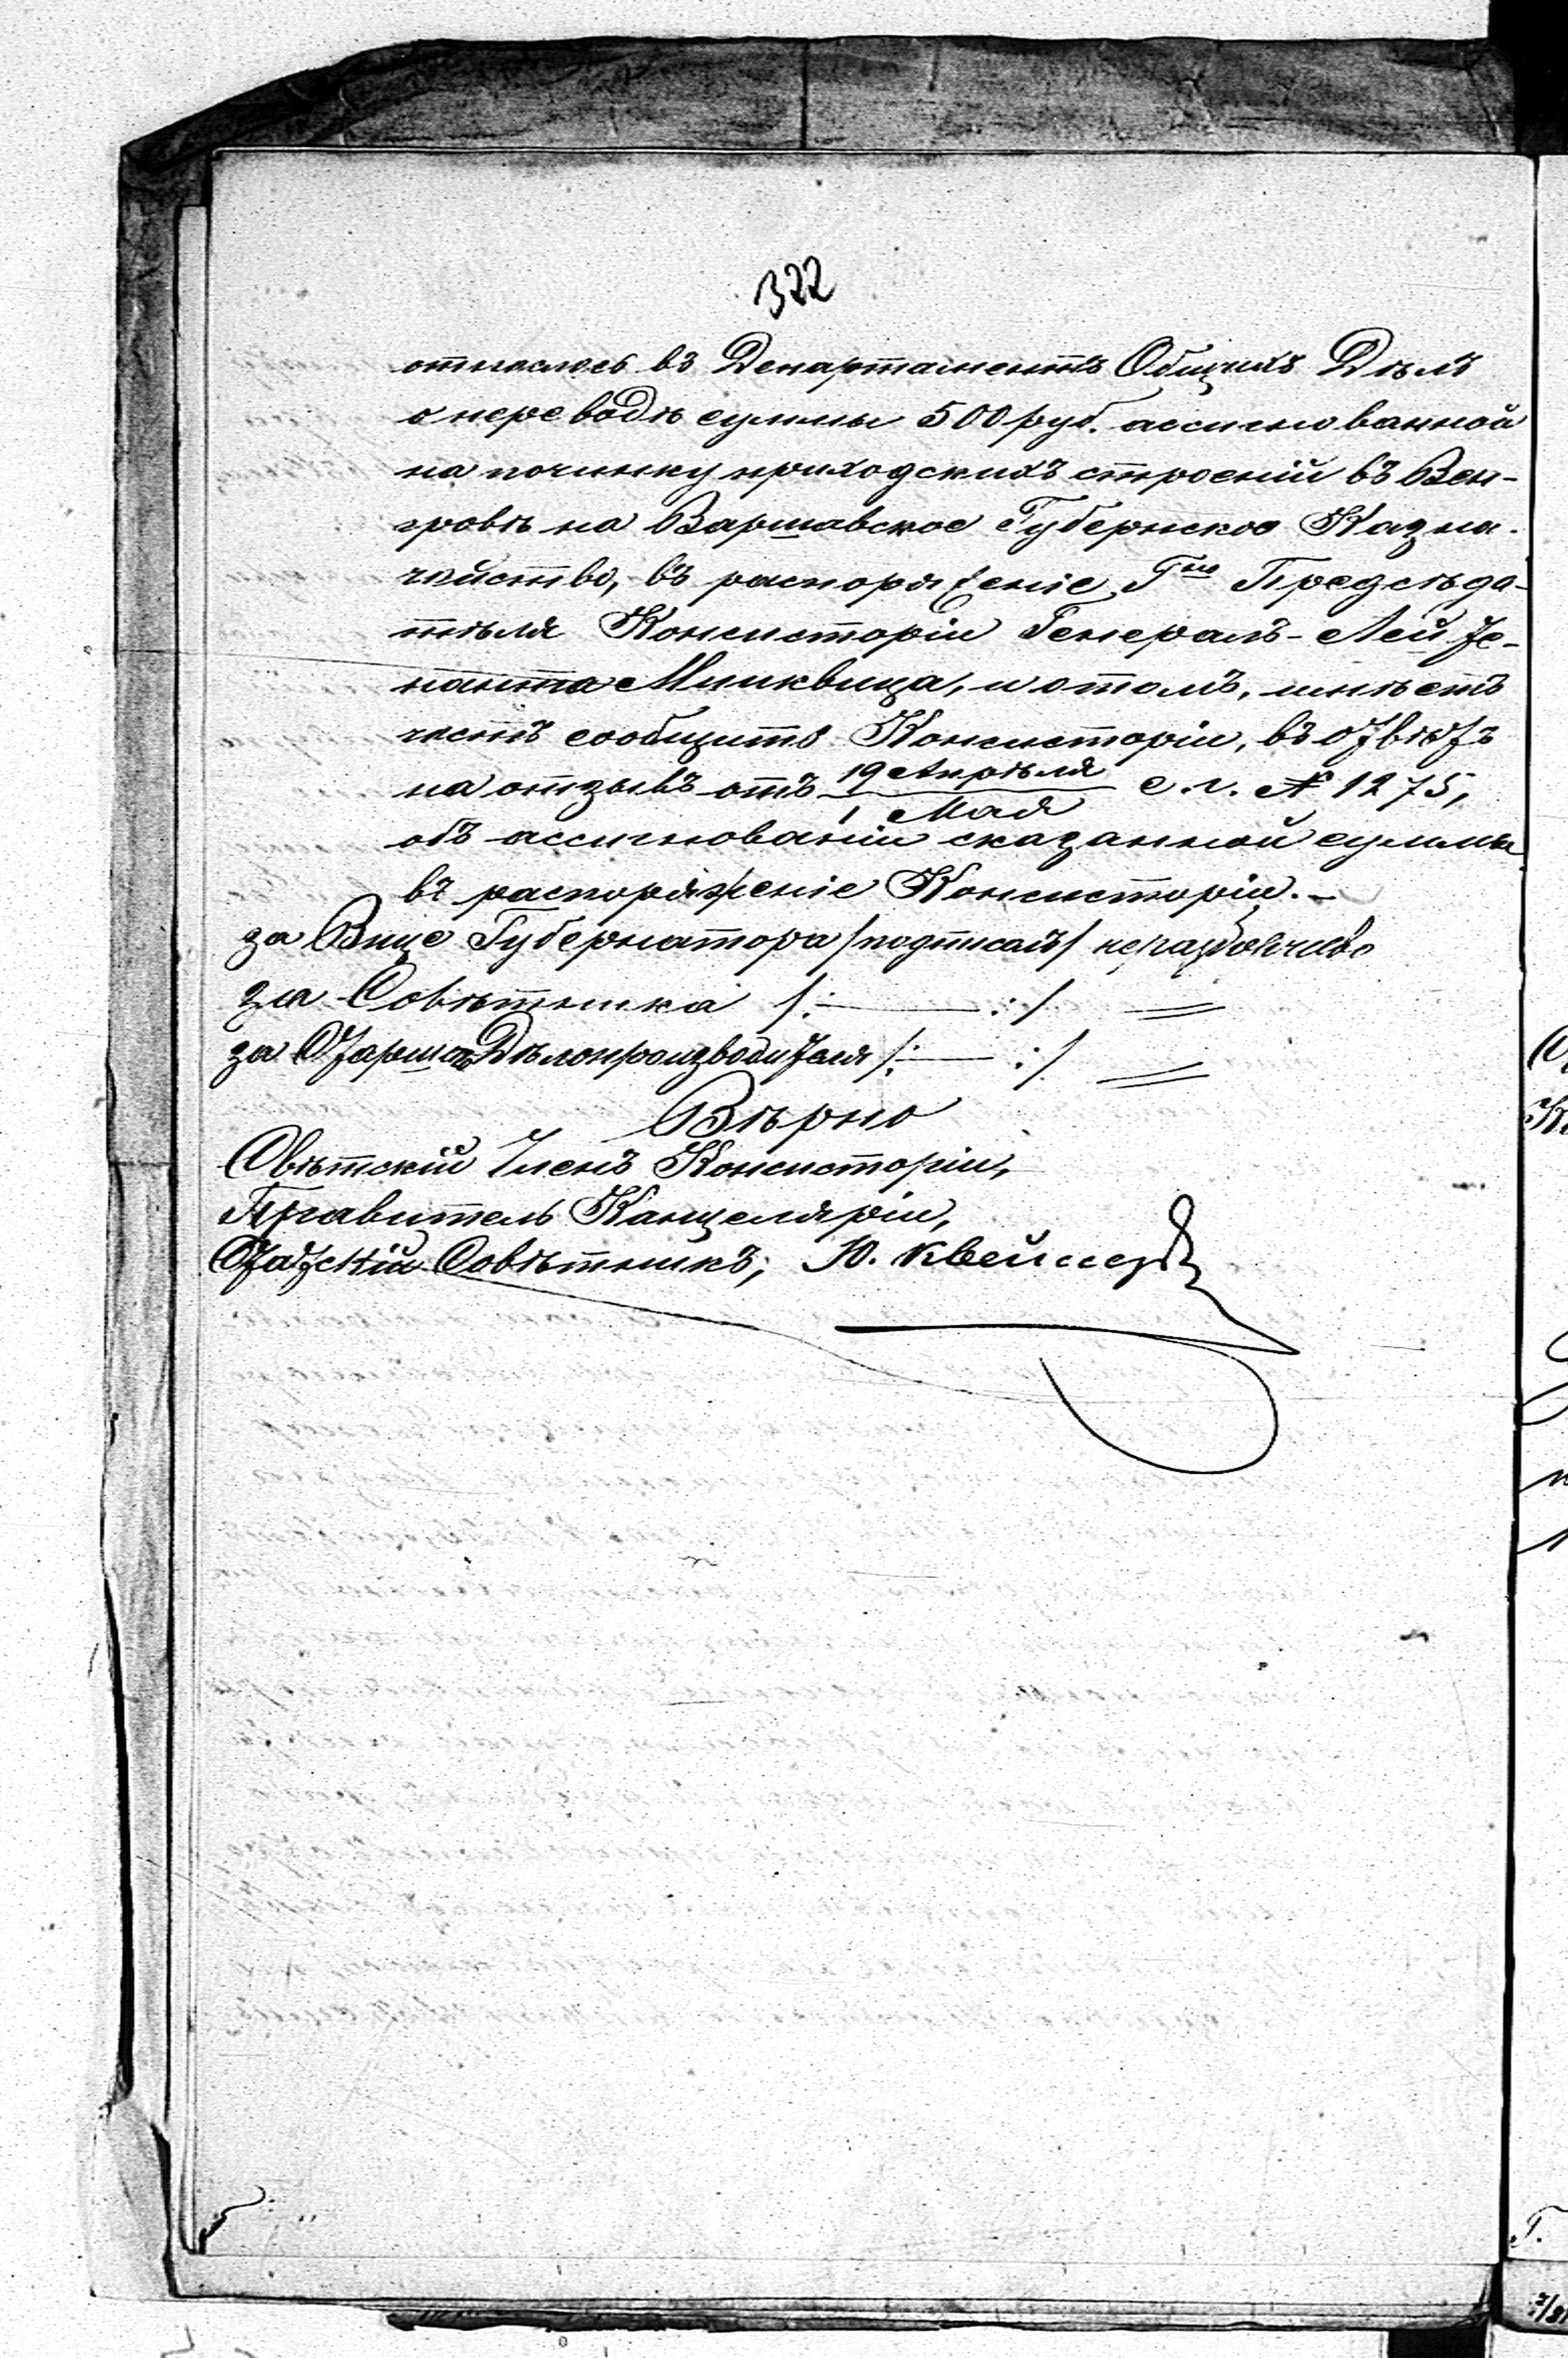 322
отнеслось въ Департаментъ Общихъ Дѣлъ
о переводѣ суммы 500 руб. ассигнованной
на починку приходскихъ строеній въ Вен-
гровѣ на Варшавское Губернское Казна-
чейство, въ распоряженіе Гна Предсѣда-
тѣля Консисторіи Генералъ-Лейте-
нанта Минквица, и о томъ, имѣетъ
честь сообщить Консисторіи, въ отвѣтъ
на отзывъ отъ 19 Апрѣля / 1 Мая с. г. № 1275,
объ ассигнованіи сказанной суммы
въ распоряженіе Консисторіи.-
за Вице Губернатора /подписалъ/ неразборчиво
за Совѣтника /: — :/ =
за Старшаго Дѣлопроизводителя /: — :/ =
Вѣрно
Свѣтскій Членъ Консисторіи,
Правитель Канцеляріи,
Статскій Совѣтникъ, Ю.